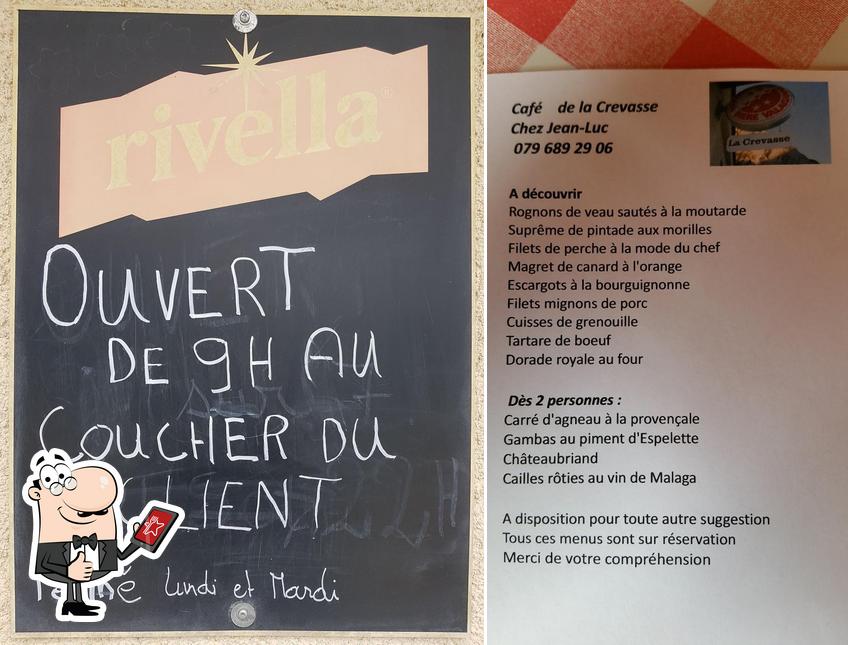 rivella®
OUVERT
DE 9H AU
COUCHER DU
CLIENT
Lundi et Mardi
Café de la Crevasse
Chez Jean-Luc
079 689 29 06
La Crevasse
A découvrir
Rognons de veau sautés à la moutarde
Suprême de pintade aux morilles
Filets de perche à la mode du chef
Magret de canard à l'orange
Escargots à la bourguignonne
Filets mignons de porc
Cuisses de grenouille
Tartare de boeuf
Dorade royale au four
Dès 2 personnes :
Carré d'agneau à la provençale
Gambas au piment d'Espelette
Châteaubriand
Cailles rôties au vin de Malaga
A disposition pour toute autre suggestion
Tous ces menus sont sur réservation
Merci de votre compréhension